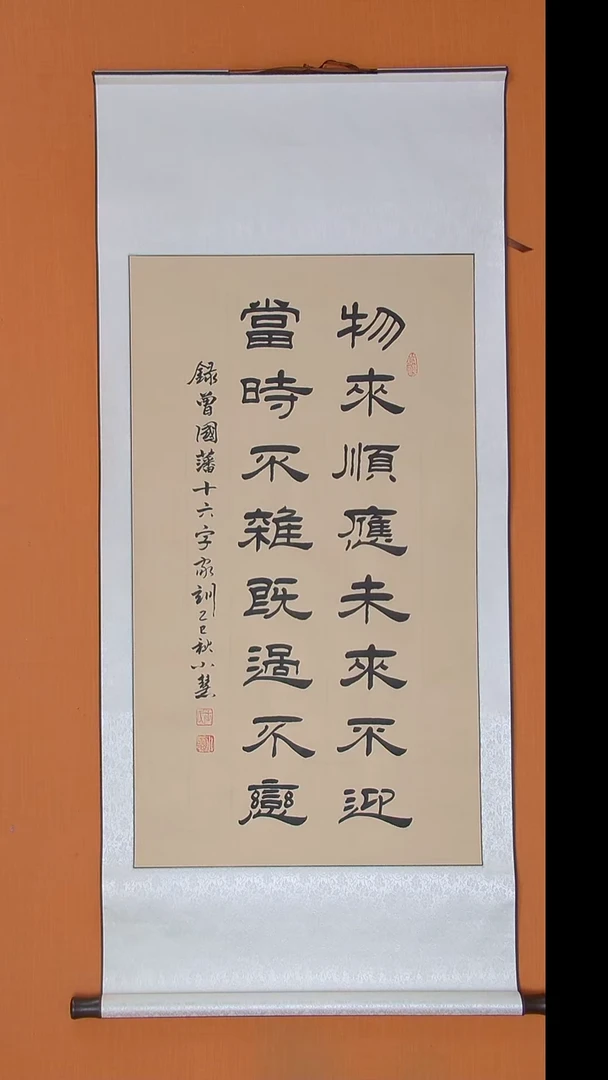 物來順應未來不迎
當時不雜既過不戀
録曾國藩十六字家訓乙巳秋小慧